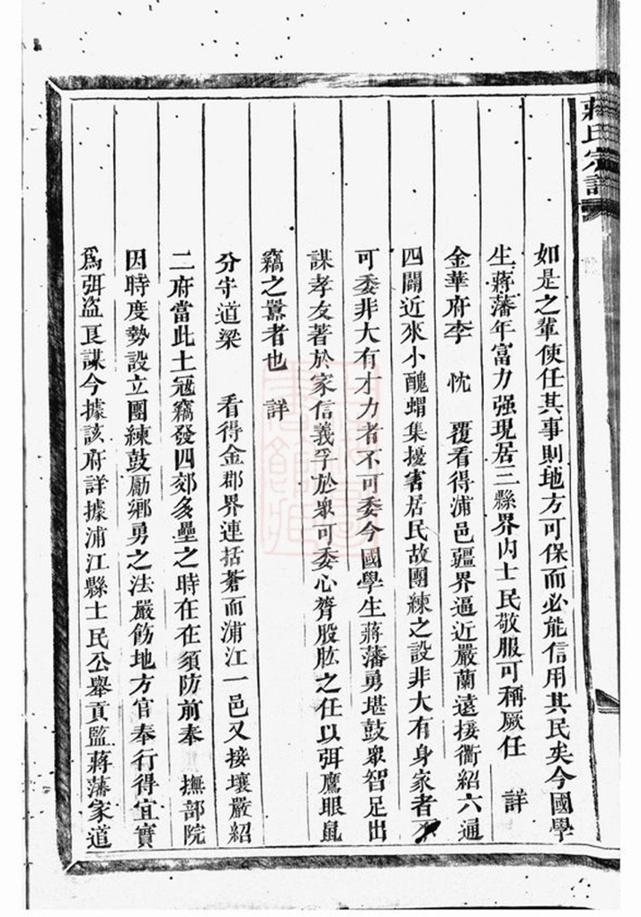 蔣氏宗譜
如是之輩使任其事則地方可保而必能信用其民矣今國學
生蔣藩年富力强現居三縣界內士民敬服可稱厥任　詳
金華府李　忱　覆看得浦邑疆界逼近嚴蘭遠接衢紹六通
四闢近來小醜蝟集擾害居民故團練之設非大有身家者不
可委非大有才力者不可委今國學生蔣藩勇堪鼓眾智足出
謀孝友著於家信義孚於眾可委心膂股肱之任以弭鷹眼鼠
竊之嚣者也　詳
分守道梁　看得金郡界連括蒼而浦江一邑又接壤嚴紹
二府當此土冦竊發四郊多壘之時在在須防前奉　撫部院
因時度勢設立團練鼓勵鄉勇之法嚴飭地方官奉行得宜實
爲弭盜良謀今據該府詳據浦江縣士民公舉貢監蔣藩家道